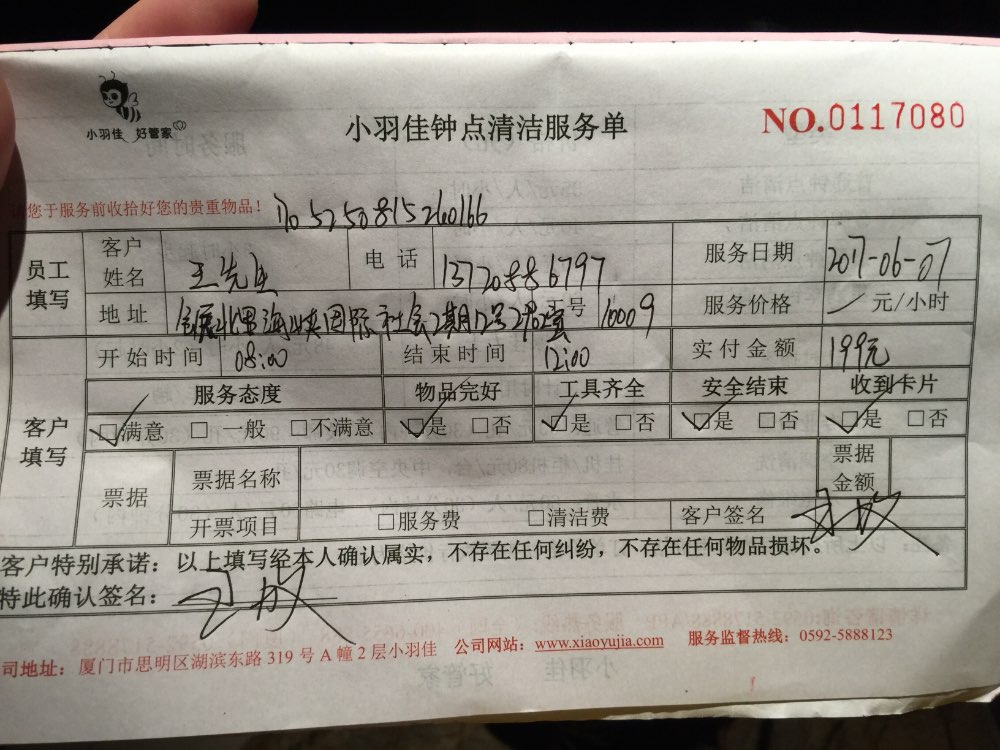 小羽佳 好管家
小羽佳钟点清洁服务单
NO.0117080
请您于服务前收拾好您的贵重物品!
员工填写 客户姓名 王先生 电话 13720886797 服务日期 2017-06-07
地址 海峡国际社会2期 工号 16009 服务价格 元/小时
客户填写 开始时间 08:00 结束时间 12:00 实付金额 199元
服务态度 物品完好 工具齐全 安全结束 收到卡片
☑满意 □一般 □不满意 ☑是 □否 ☑是 □否 ☑是 □否 ☑是 □否
票据 票据名称 票据金额
开票项目 □服务费 □清洁费 客户签名
客户特别承诺:以上填写经本人确认属实,不存在任何纠纷,不存在任何物品损坏。
特此确认签名:
司地址:厦门市思明区湖滨东路 319 号 A 幢 2 层小羽佳 公司网站:www.xiaoyujia.com 服务监督热线:0592-5888123